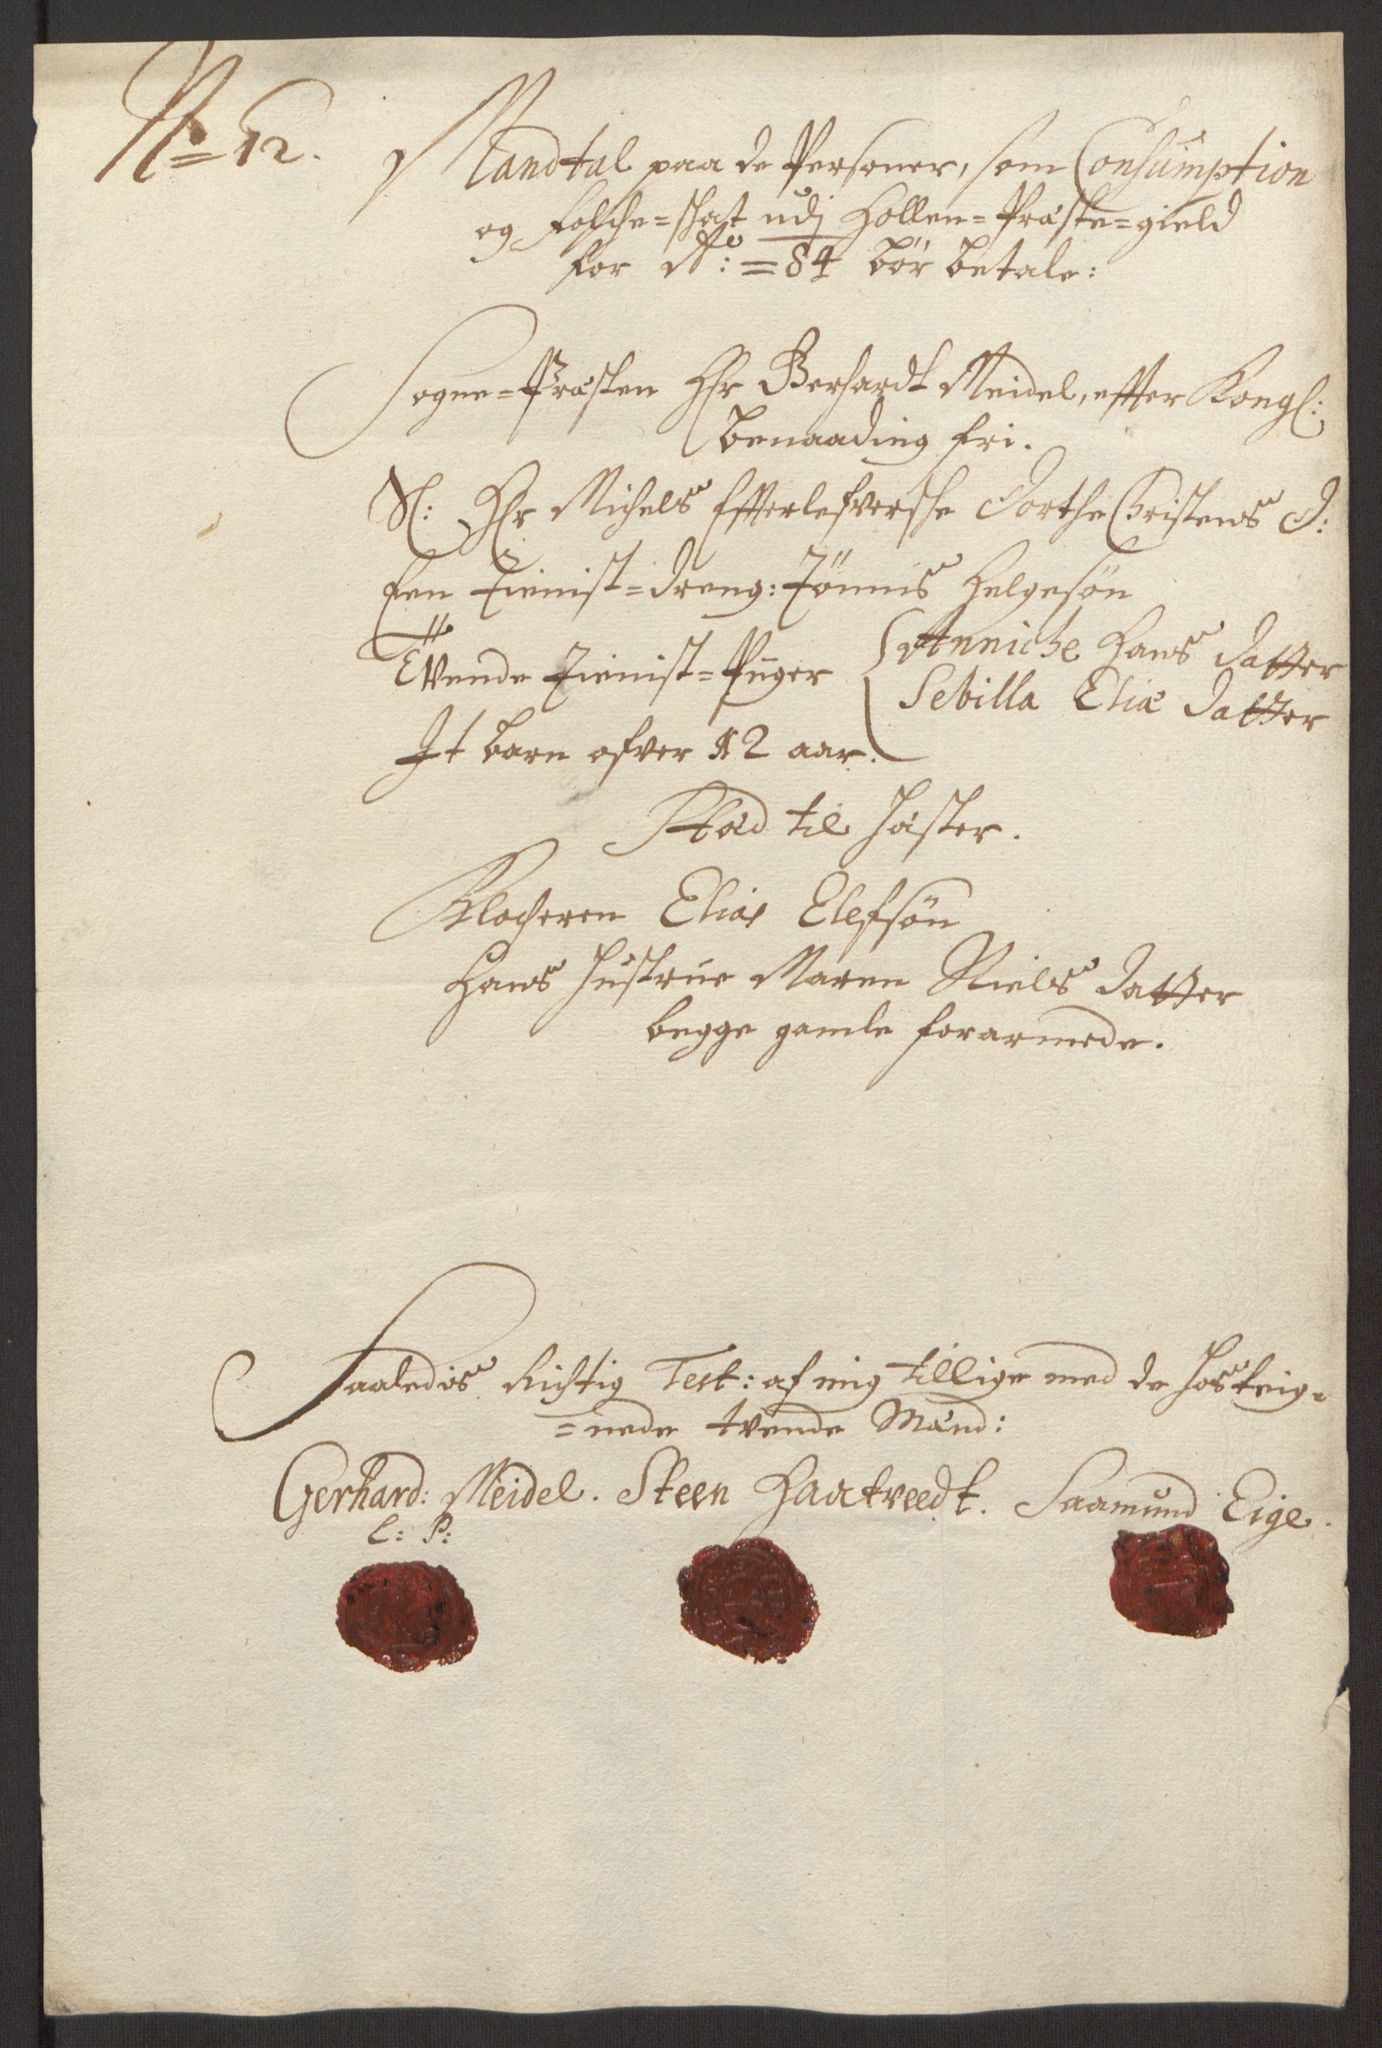 No = 12.
Mandtal paa de Personer, som Consumption
og Folche=skat udj Hollen=Præste=gield
for Ao: = 84 bør betale:
Sogne=Præsten Hr Gerhardt Meidel, effter Kongl:
benaading fri.
Sl: Hr Michels Effterlefversche Dorthe Christens D:
Een Tienist=dreng: Tönnis Helgesøn
Tvende Tienist=Piger { Anniche Hans datter
Sebilla Eliæ datter
It barn ofver 12 aar.
Stæd til Hæster.
Klocheren Elias Elefsøn
Hans Hustrue Maren Niels datter
begge gamle forarmede.
Saaledis Richtig Test: af mig tillige med de hosteig=
=nede tvende Mænd:
Gerhard: Meidel. Steen Haatveedt. Saamund Eige.